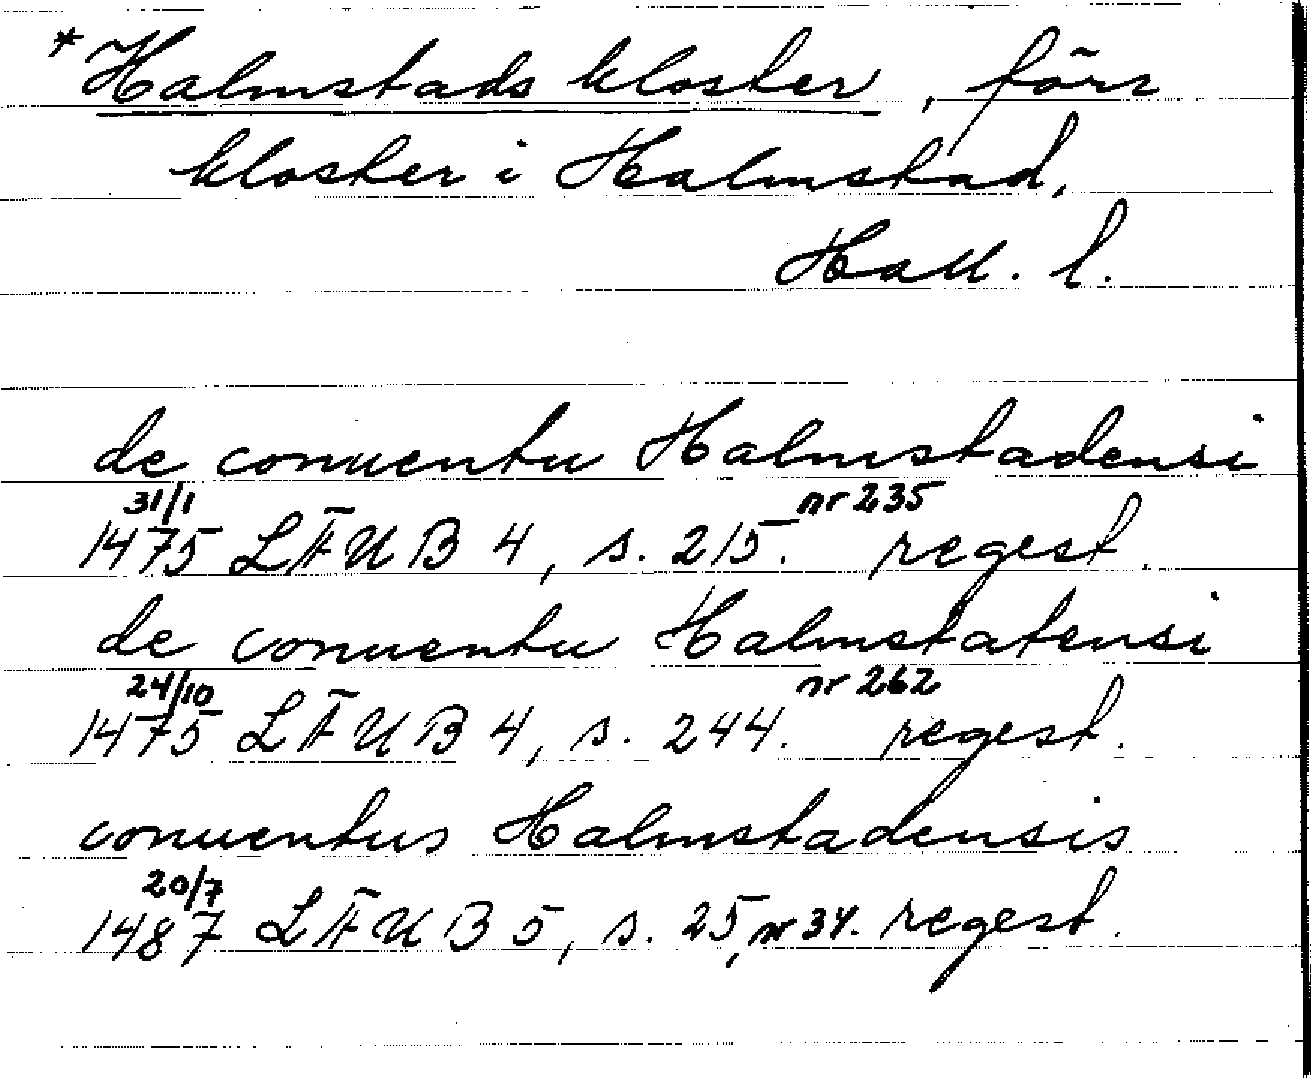 *Halmstads kloster, förr
kloster i Halmstad,
Hall. l.
de conuentu Halmstadensi
31/1 nr 235
1475 LÄUB 4, s. 215. regest.
de conuentu Halmstatensi
24/10 nr 262
1475 LÄUB 4, s. 244. regest.
conuentus Halmstadensis
20/7
1487 LÄUB 5, s. 25, nr 34. regest.